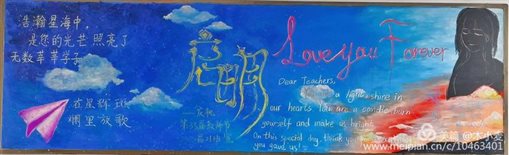 浩瀚星海中,
是您的光芒照亮了
无数莘莘学子
在星辉斑
斓里放歌
启明
庆祝
第35届教师节
Love you Forever
Dear Teachers,
a light shine in
our hearts
burn
yourself and make us bright.
On this special day, thank you
you gave us!
美篇 @木小麦
www.meipian.cn/c/10463401